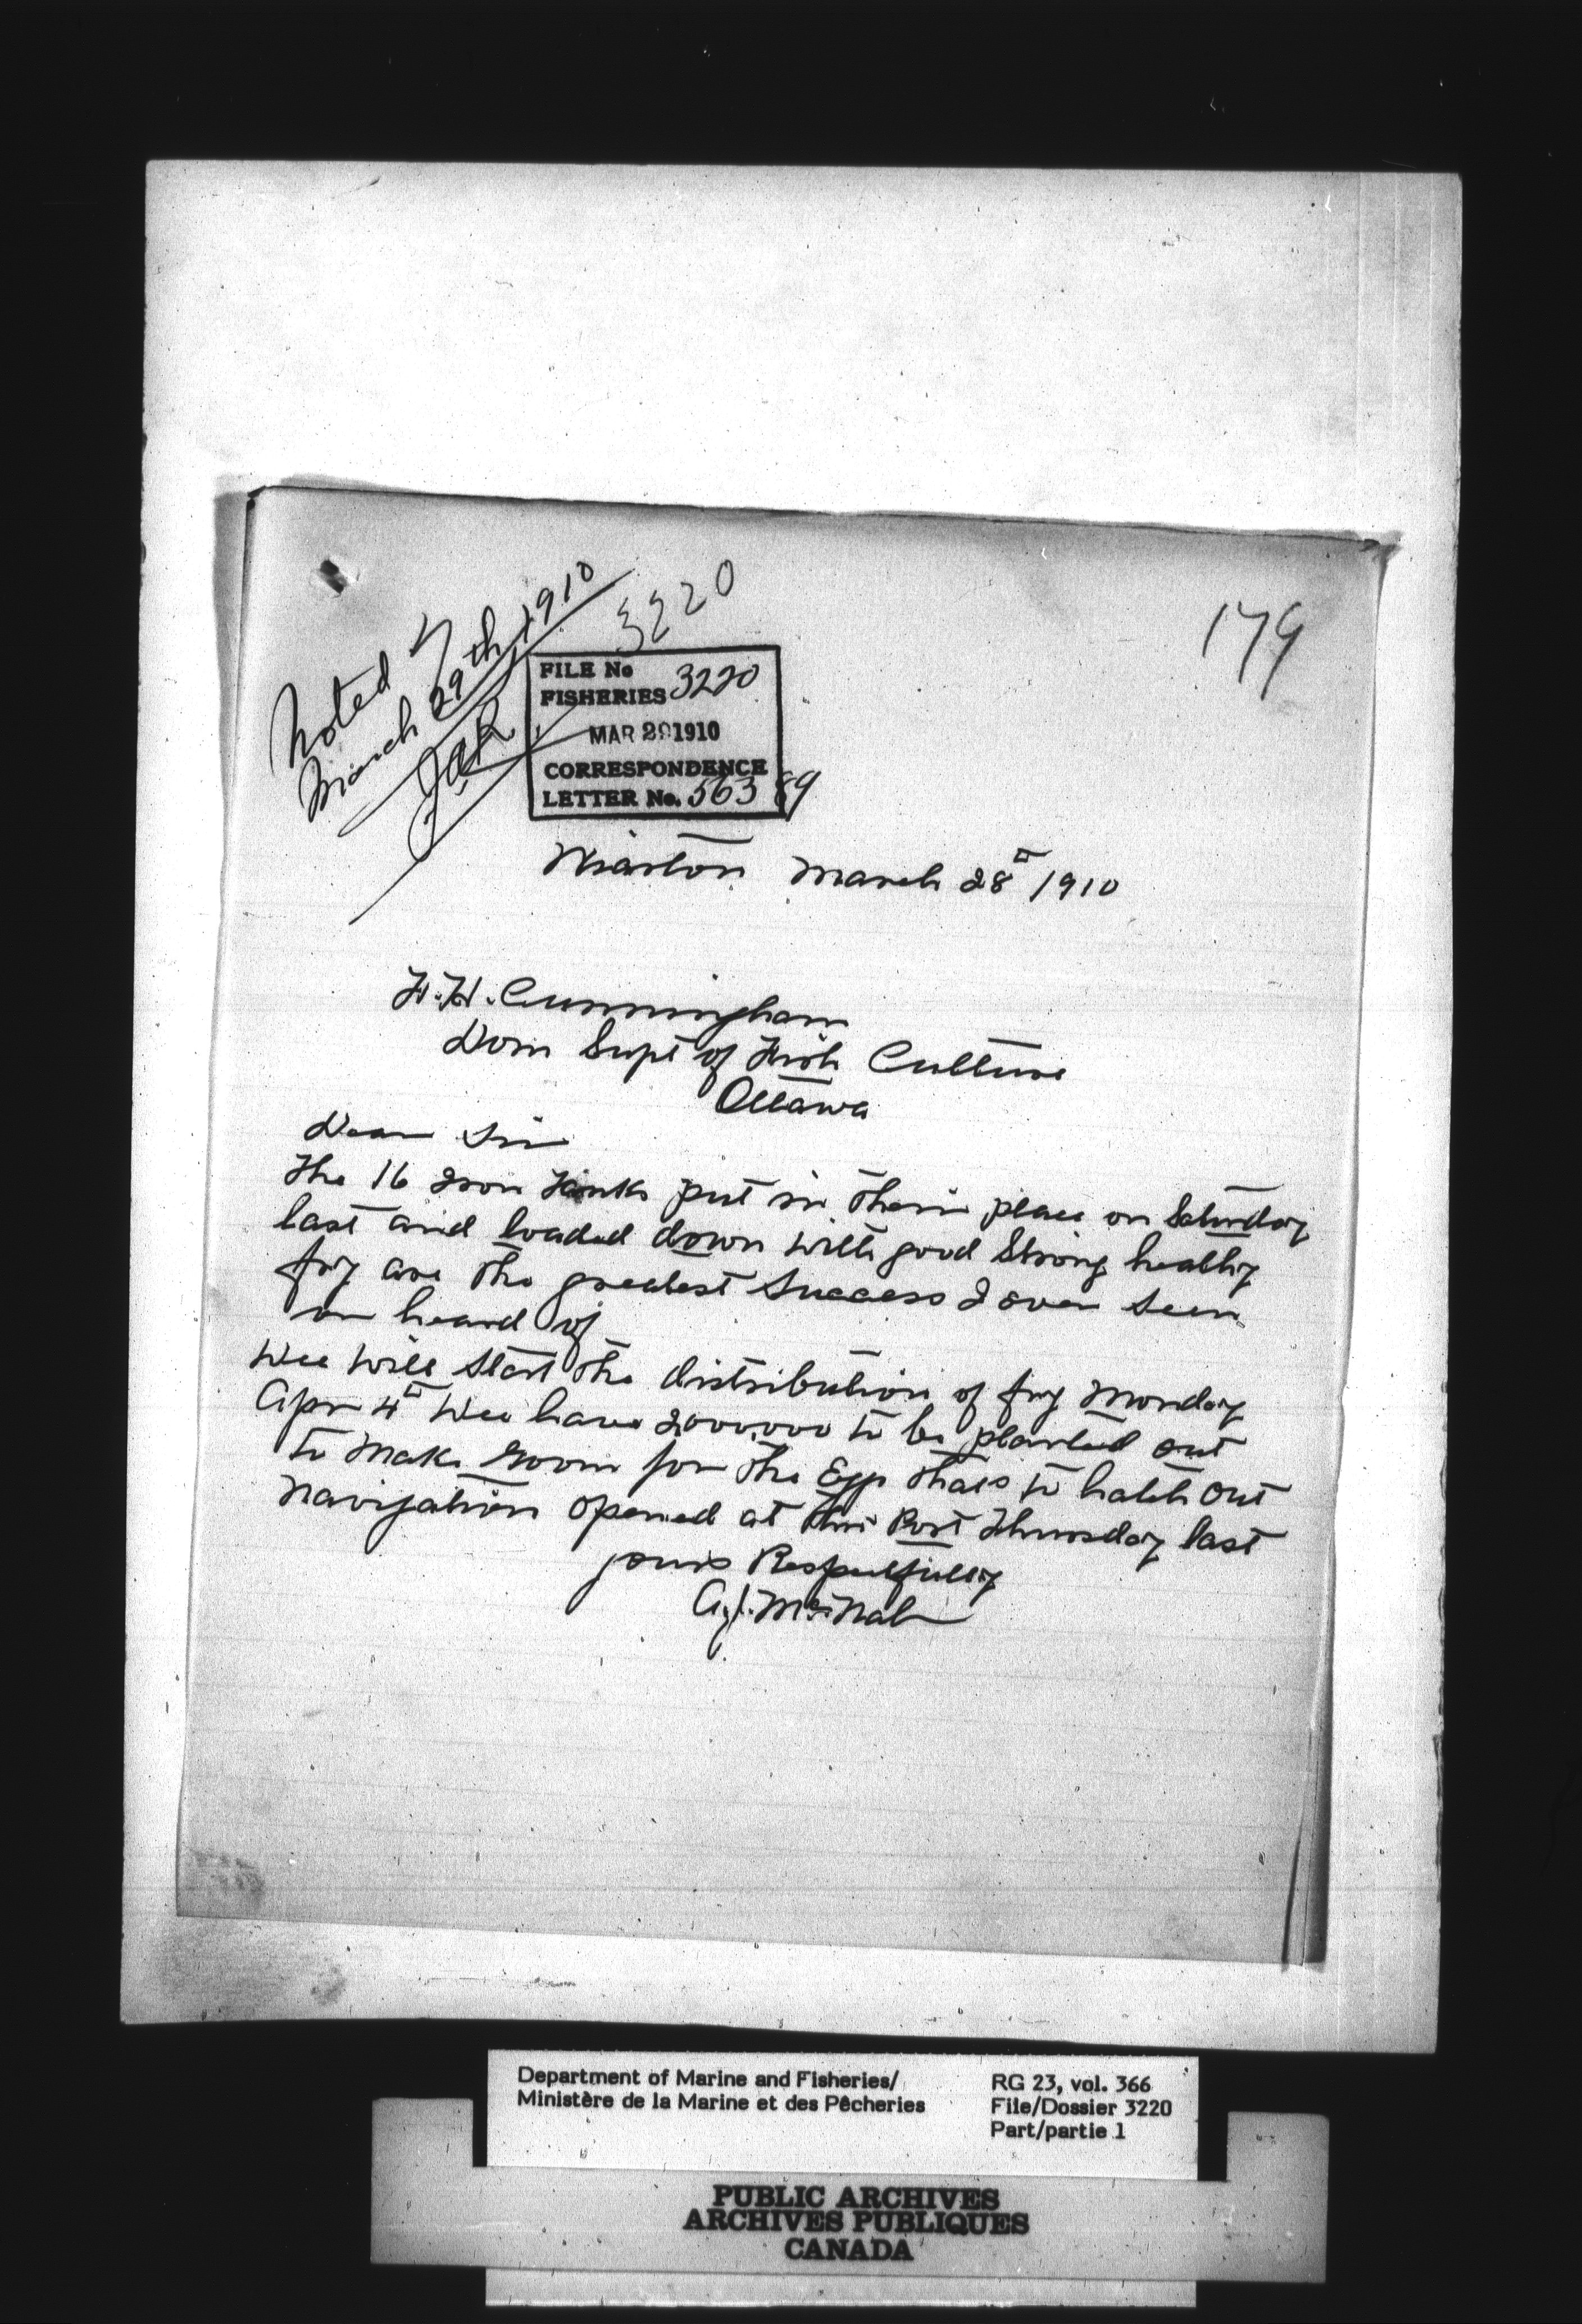 Noted
March 29th, 1910
3220
179
FILE No
FISHERIES 3220
MAR 29 1910
CORRESPONDENCE
LETTER No. 56389
Wiarton March 28th 1910
F.H. Cunningham
Dom Supt of Fish Culture
Ottawa
Dear Sir
The 16 Iron Tanks put in their place on Saturday
last and loaded down with good Strong healthy
fry are the greatest Success I ever seen
or heard of
Wee will start the distribution of fry Monday
Apr 4th Wee have 2,000,000 to be planted out
to make room for the Egg thats to hatch out
Navigation opened at this Port Thursday last
yours Respectfully
A.J. McNab
Department of Marine and Fisheries/
Ministère de la Marine et des Pêcheries
RG 23, vol. 366
File/Dossier 3220
Part/partie 1
PUBLIC ARCHIVES
ARCHIVES PUBLIQUES
CANADA